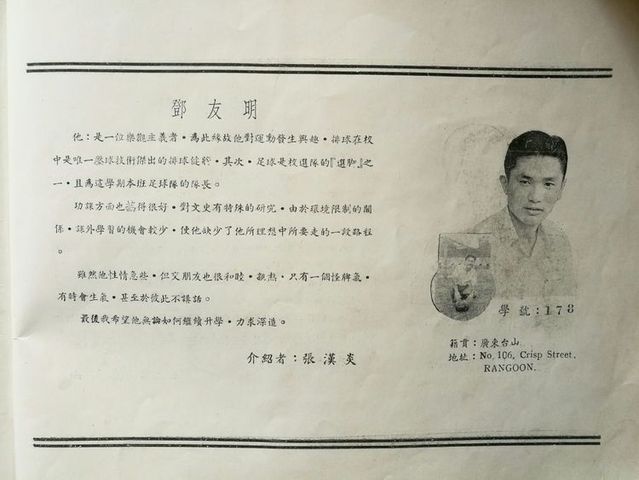 鄧友明
他：是一位樂觀主義者·為此緣故他對運動發生興趣·排球在校
中是唯一壓球技術傑出的排球健將·其次·足球是校選隊的『選脚』之
一·且為這學期本班足球隊的隊長。
功課方面也搞得很好·對文史有特殊的研究·由於環境限制的關
係·課外學習的機會較少·使他缺少了他所理想中所要走的一段路程
。
雖然他性情急些·但交朋友也很和睦·親熱·只有一個怪脾氣·
有時會生氣·甚至於彼此不講話。
最後我希望他無論如何繼續升學·力求深造。
介紹者：張漢炎
學號：178
籍貫：廣東台山
地址：No, 106, Crisp Street,
RANGOON.